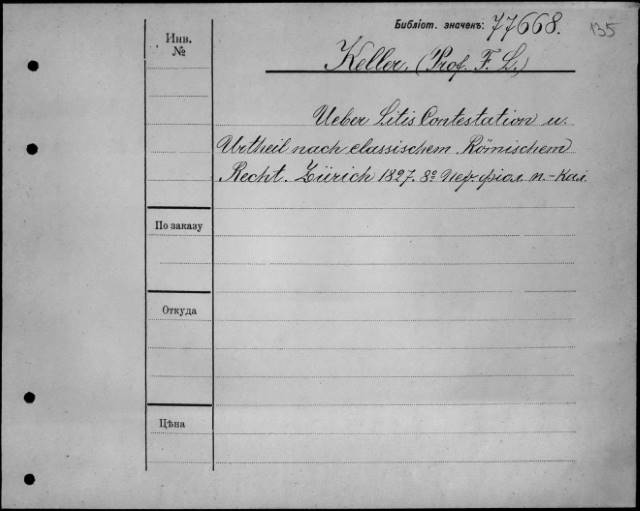 Библіот. значекъ: 77668.
135
Инв.
№
Keller, (Prof. F. L.)
Ueber Litis Contestation u.
Urtheil nach classischem Römischem
Recht. Zürich 1827. 8º п.-кал
По заказу
Откуда
Цѣна